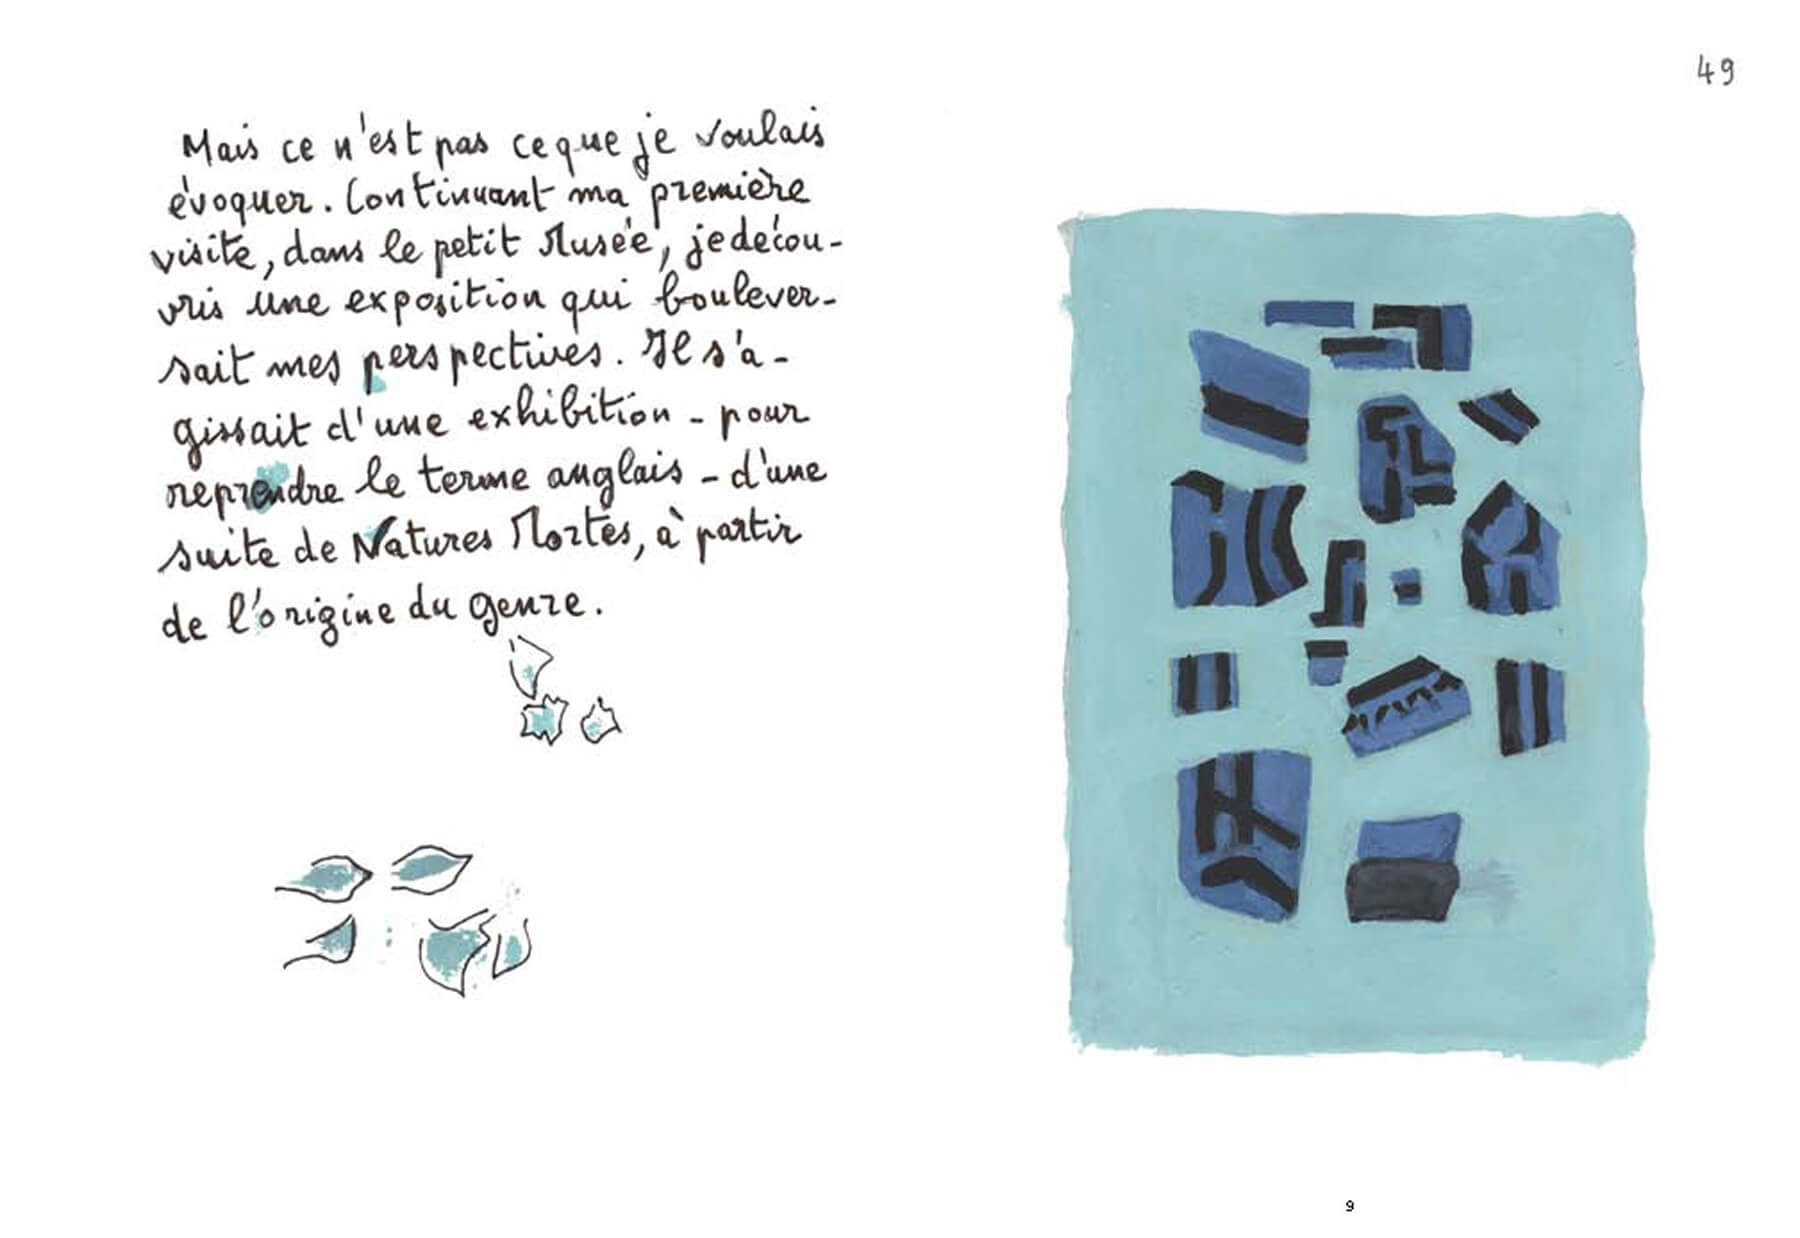 49
Mais ce n'est pas ce que je voulais
évoquer. Continuant ma première
visite, dans le petit Musée, je décou-
vris une exposition qui boulever-
sait mes perspectives. Il s'a-
gissait d'une exhibition - pour
reprendre le terme anglais - d'une
suite de Natures Mortes, à partir
de l'origine du genre.
9